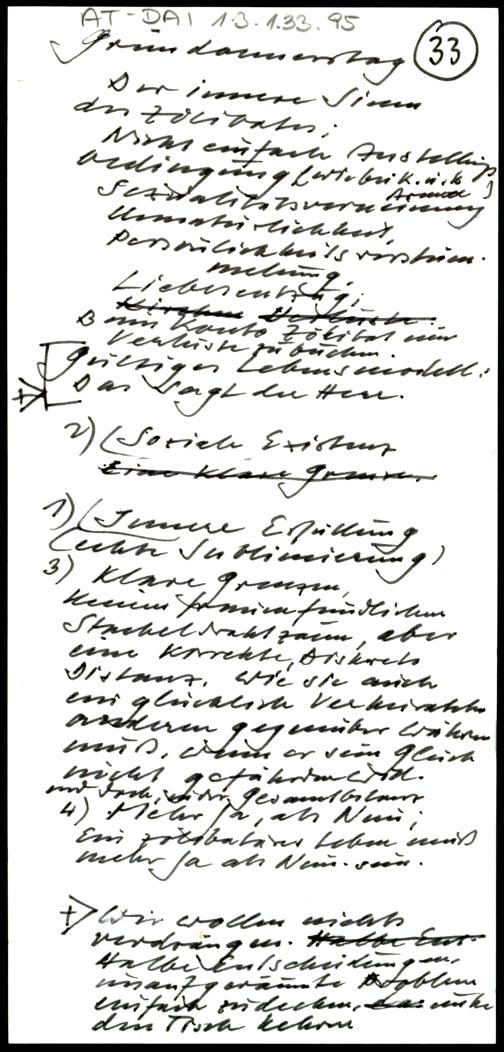 AT-DAI 1.3.1.33.95
33
Gründonnerstag
Der innere Sinn
des Zölibates:
Nicht einfach Anstellungs
bedingung
Sexualitätsverneinung
Unnatürlichkeit,
Persönlichkeitsverstüm-
melung,
Liebesentzug,
ein Konto Zölibat nur
Verluste zu buchen.
gültiges Lebensmodell:
Das sagt der Herr.
2) (Soziale Existenz
Eine klare Grenze.
1) (Innere Erfüllung
(echte Sublimierung)
3) Klare Grenzen,
keinen frauenfeindlichen
Stacheldrahtzaun, aber
eine korrekte, diskrete
Distanz, wie sie auch
ein glücklich Verheirateter
anderen gegenüber wahren
muß, wenn er sein Glück
nicht gefährden will.
und doch, in der Gesamtbilanz
4) Mehr Ja, als Nein;
Ein zölibatäres Leben muß
mehr Ja als Nein sein.
+) Wir wollen nichts
verdrängen. Halbe Ent-
Halbe Entscheidungen,
unausgeräumte Probleme
einfach zudecken, unter
den Tisch kehren